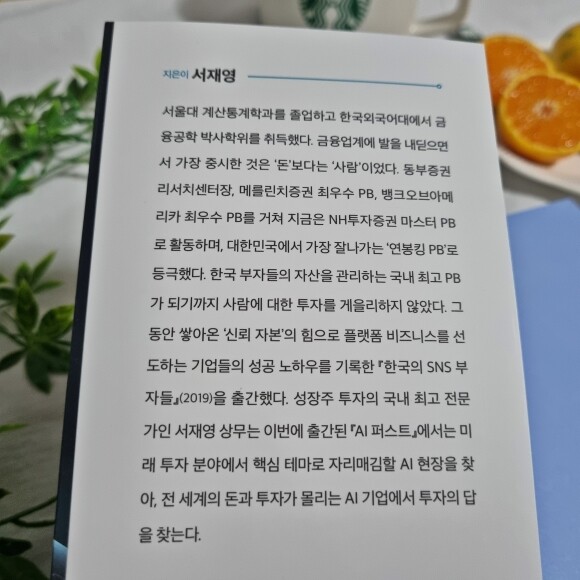 지은이 서재영
서울대 계산통계학과를 졸업하고 한국외국어대에서 금
융공학 박사학위를 취득했다. 금융업계에 발을 내딛으면
서 가장 중시한 것은 '돈'보다는 '사람'이었다. 동부증권
리서치센터장, 메릴린치증권 최우수 PB, 뱅크오브아메
리카 최우수 PB를 거쳐 지금은 NH투자증권 마스터 PB
로 활동하며, 대한민국에서 가장 잘나가는 '연봉킹 PB'로
등극했다. 한국 부자들의 자산을 관리하는 국내 최고 PB
가 되기까지 사람에 대한 투자를 게을리하지 않았다. 그
동안 쌓아온 '신뢰 자본'의 힘으로 플랫폼 비즈니스를 선
도하는 기업들의 성공 노하우를 기록한 『한국의 SNS 부
자들』(2019)을 출간했다. 성장주 투자의 국내 최고 전문
가인 서재영 상무는 이번에 출간된 『AI 퍼스트』에서는 미
래 투자 분야에서 핵심 테마로 자리매김할 AI 현장을 찾
아, 전 세계의 돈과 투자가 몰리는 AI 기업에서 투자의 답
을 찾는다.